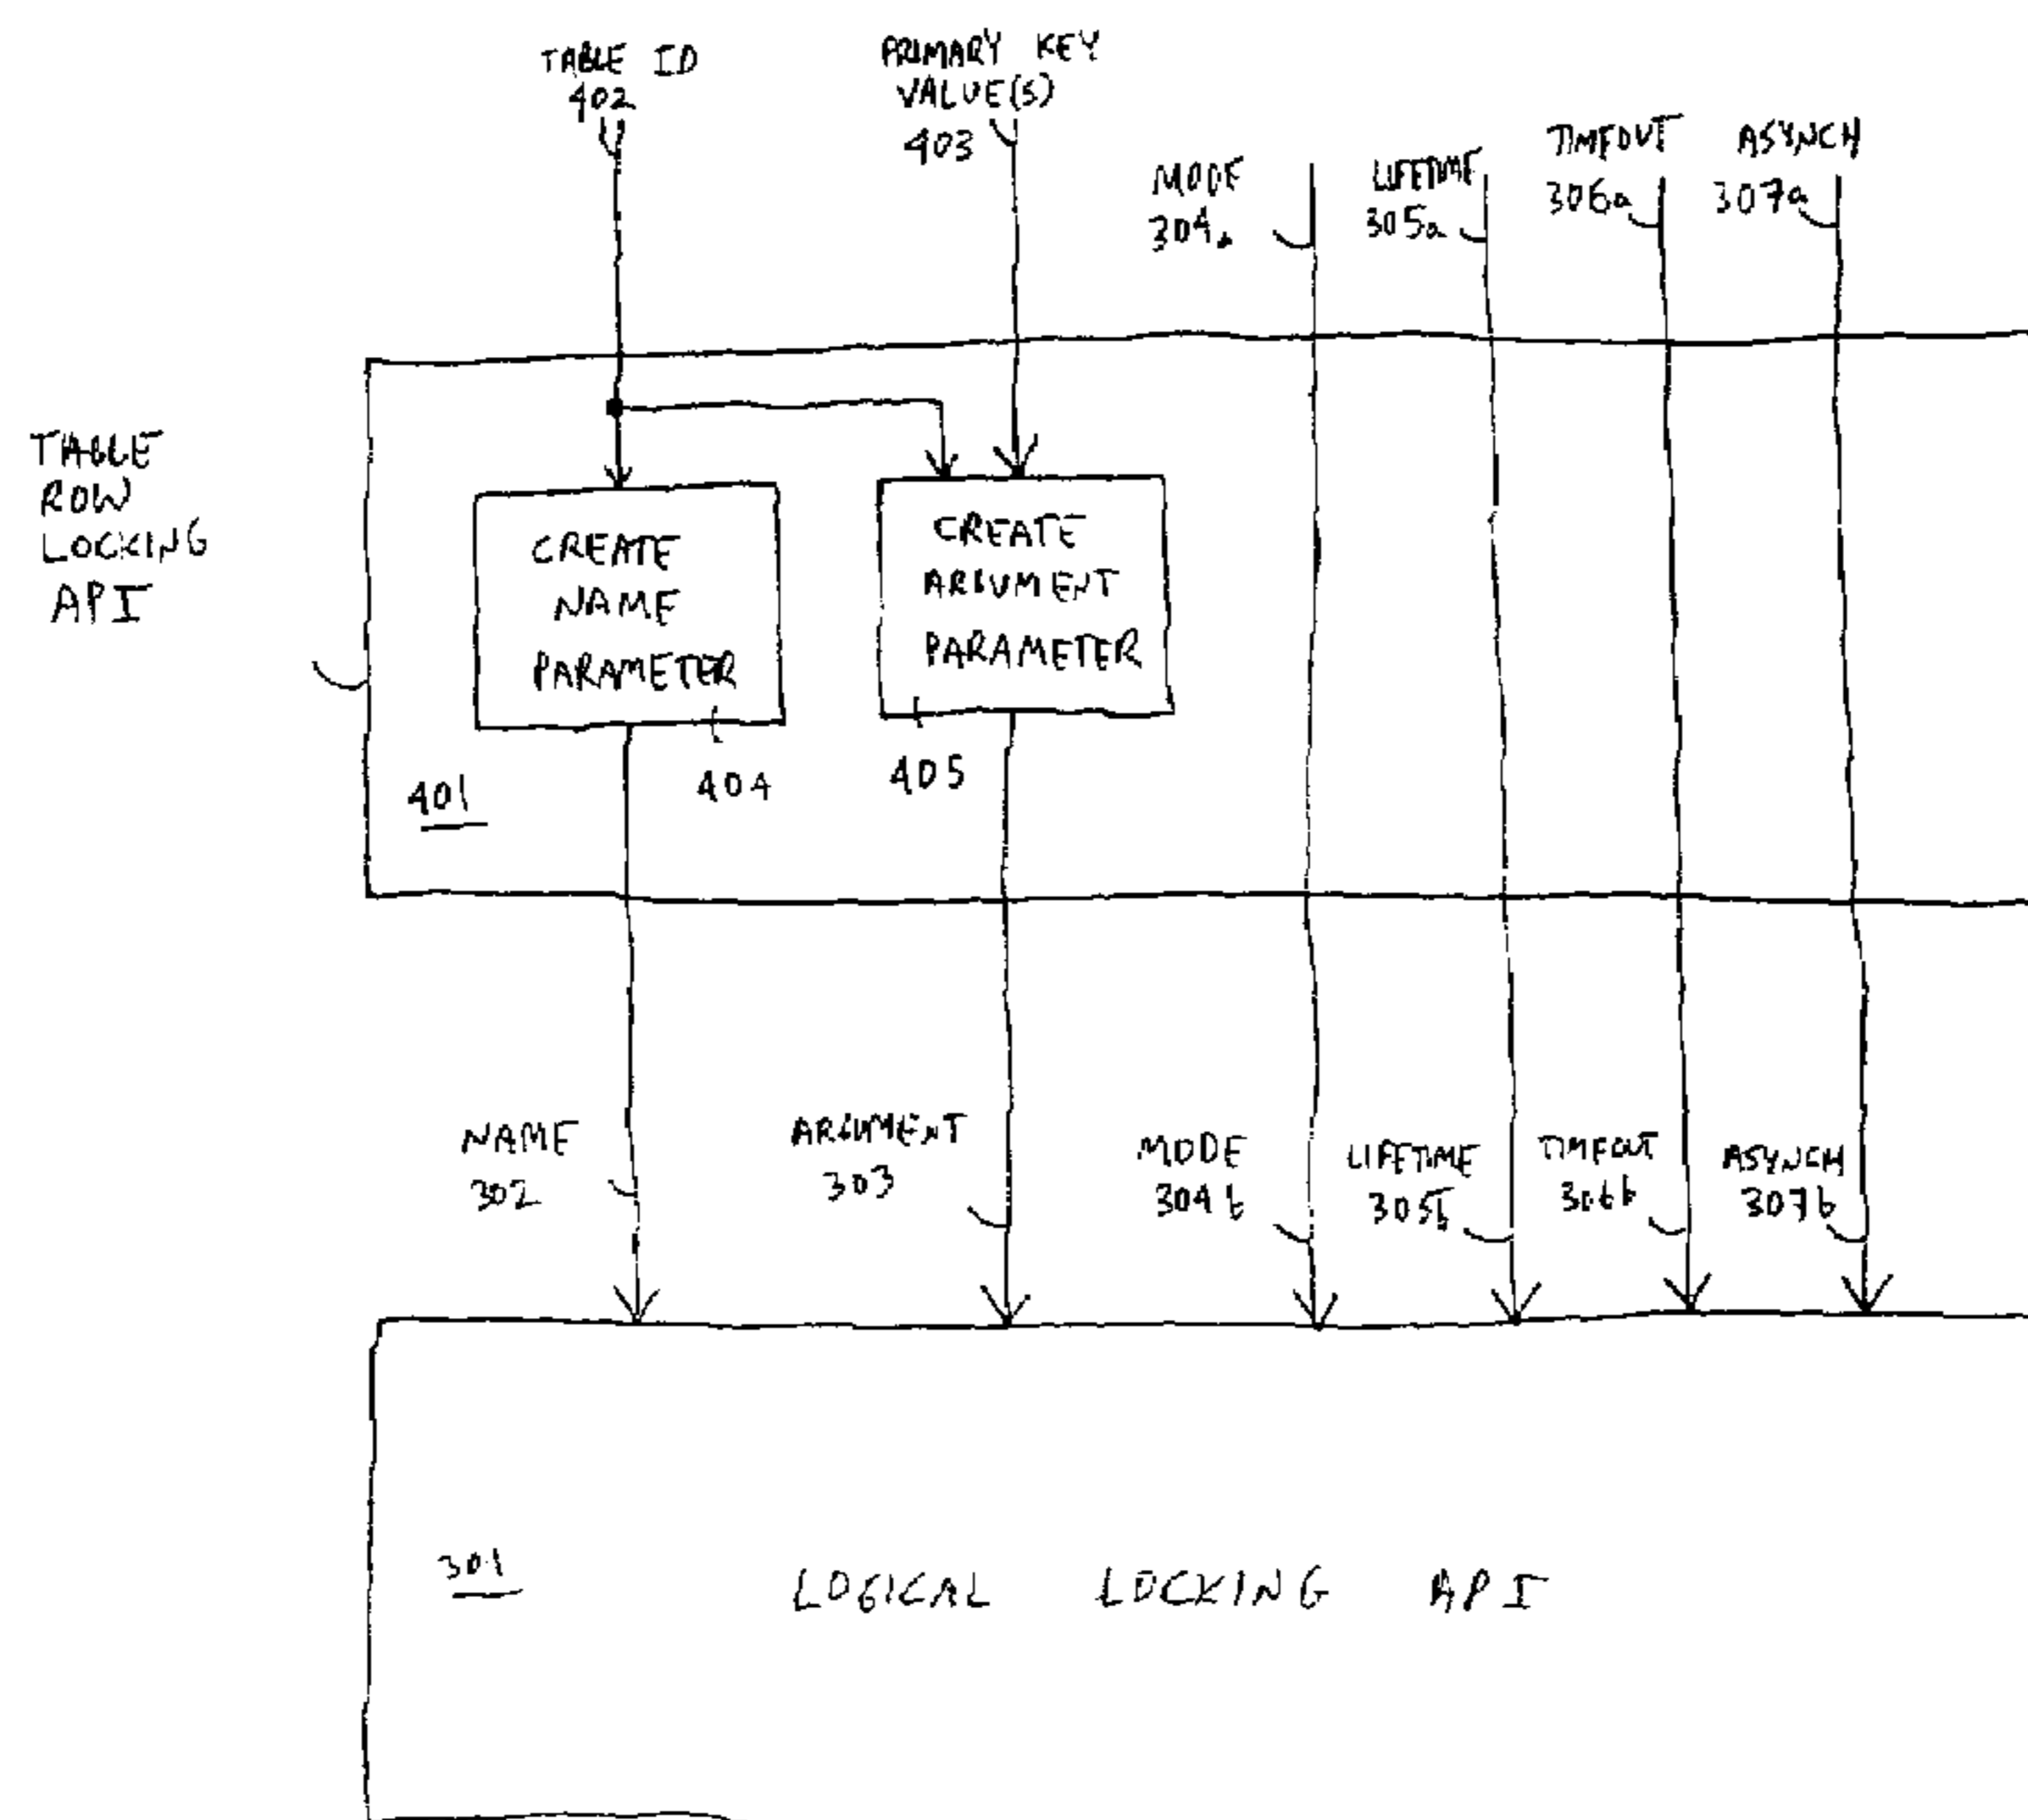 TABLE ID
402
PRIMARY KEY
VALUE(S)
403
MODE
304a
LIFETIME
305a
TIMEOUT
306a
ASYNCH
307a
TABLE
ROW
LOCKING
API
CREATE
NAME
PARAMETER
404
CREATE
ARGUMENT
PARAMETER
405
401
NAME
302
ARGUMENT
303
MODE
304b
LIFETIME
305b
TIMEOUT
306b
ASYNCH
307b
301
LOGICAL LOCKING API